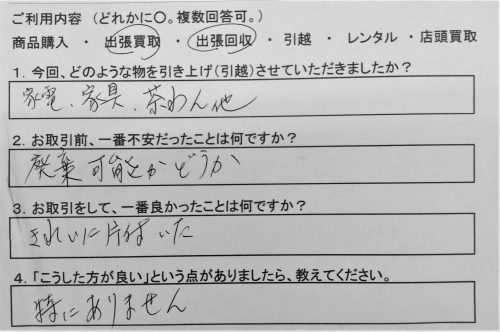 ご利用内容 （どれかに〇。複数回答可。）
商品購入 ・ 出張買取 ・ 出張回収 ・ 引越 ・ レンタル ・ 店頭買取
1．今回、どのような物を引き上げ（引越）させていただきましたか？
家電、家具、茶わん他
2．お取引前、一番不安だったことは何ですか？
廃棄可能かどうか
3．お取引をして、一番良かったことは何ですか？
きれいに片付いた
4．「こうした方が良い」という点がありましたら、教えてください。
特にありません